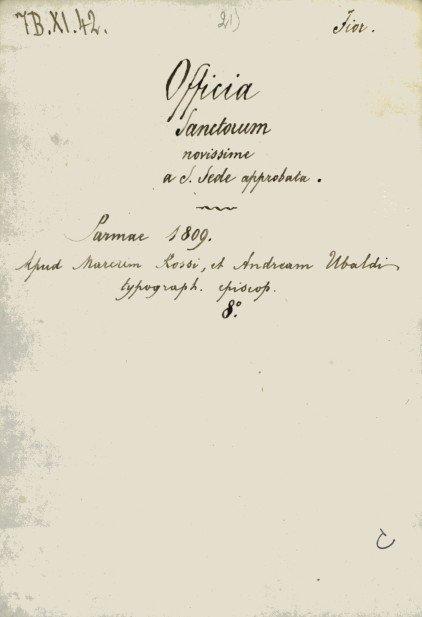 7B.XI.42. 21) Fior.
Officia
Sanctorum
novissime
a S. Sede approbata.
Parmae 1809.
Apud Marcum Rossi, et Andream Ubaldi
typograph. episcop.
8.°